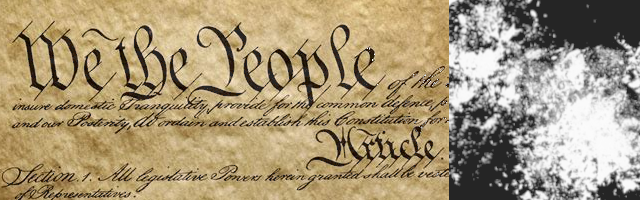 We the People of the
insure domestic Tranquility, provide for the common defence,
and our Posterity, do ordain and establish this Constitution for
Article.
Section. 1. All legislative Powers herein granted shall be
of Representatives.